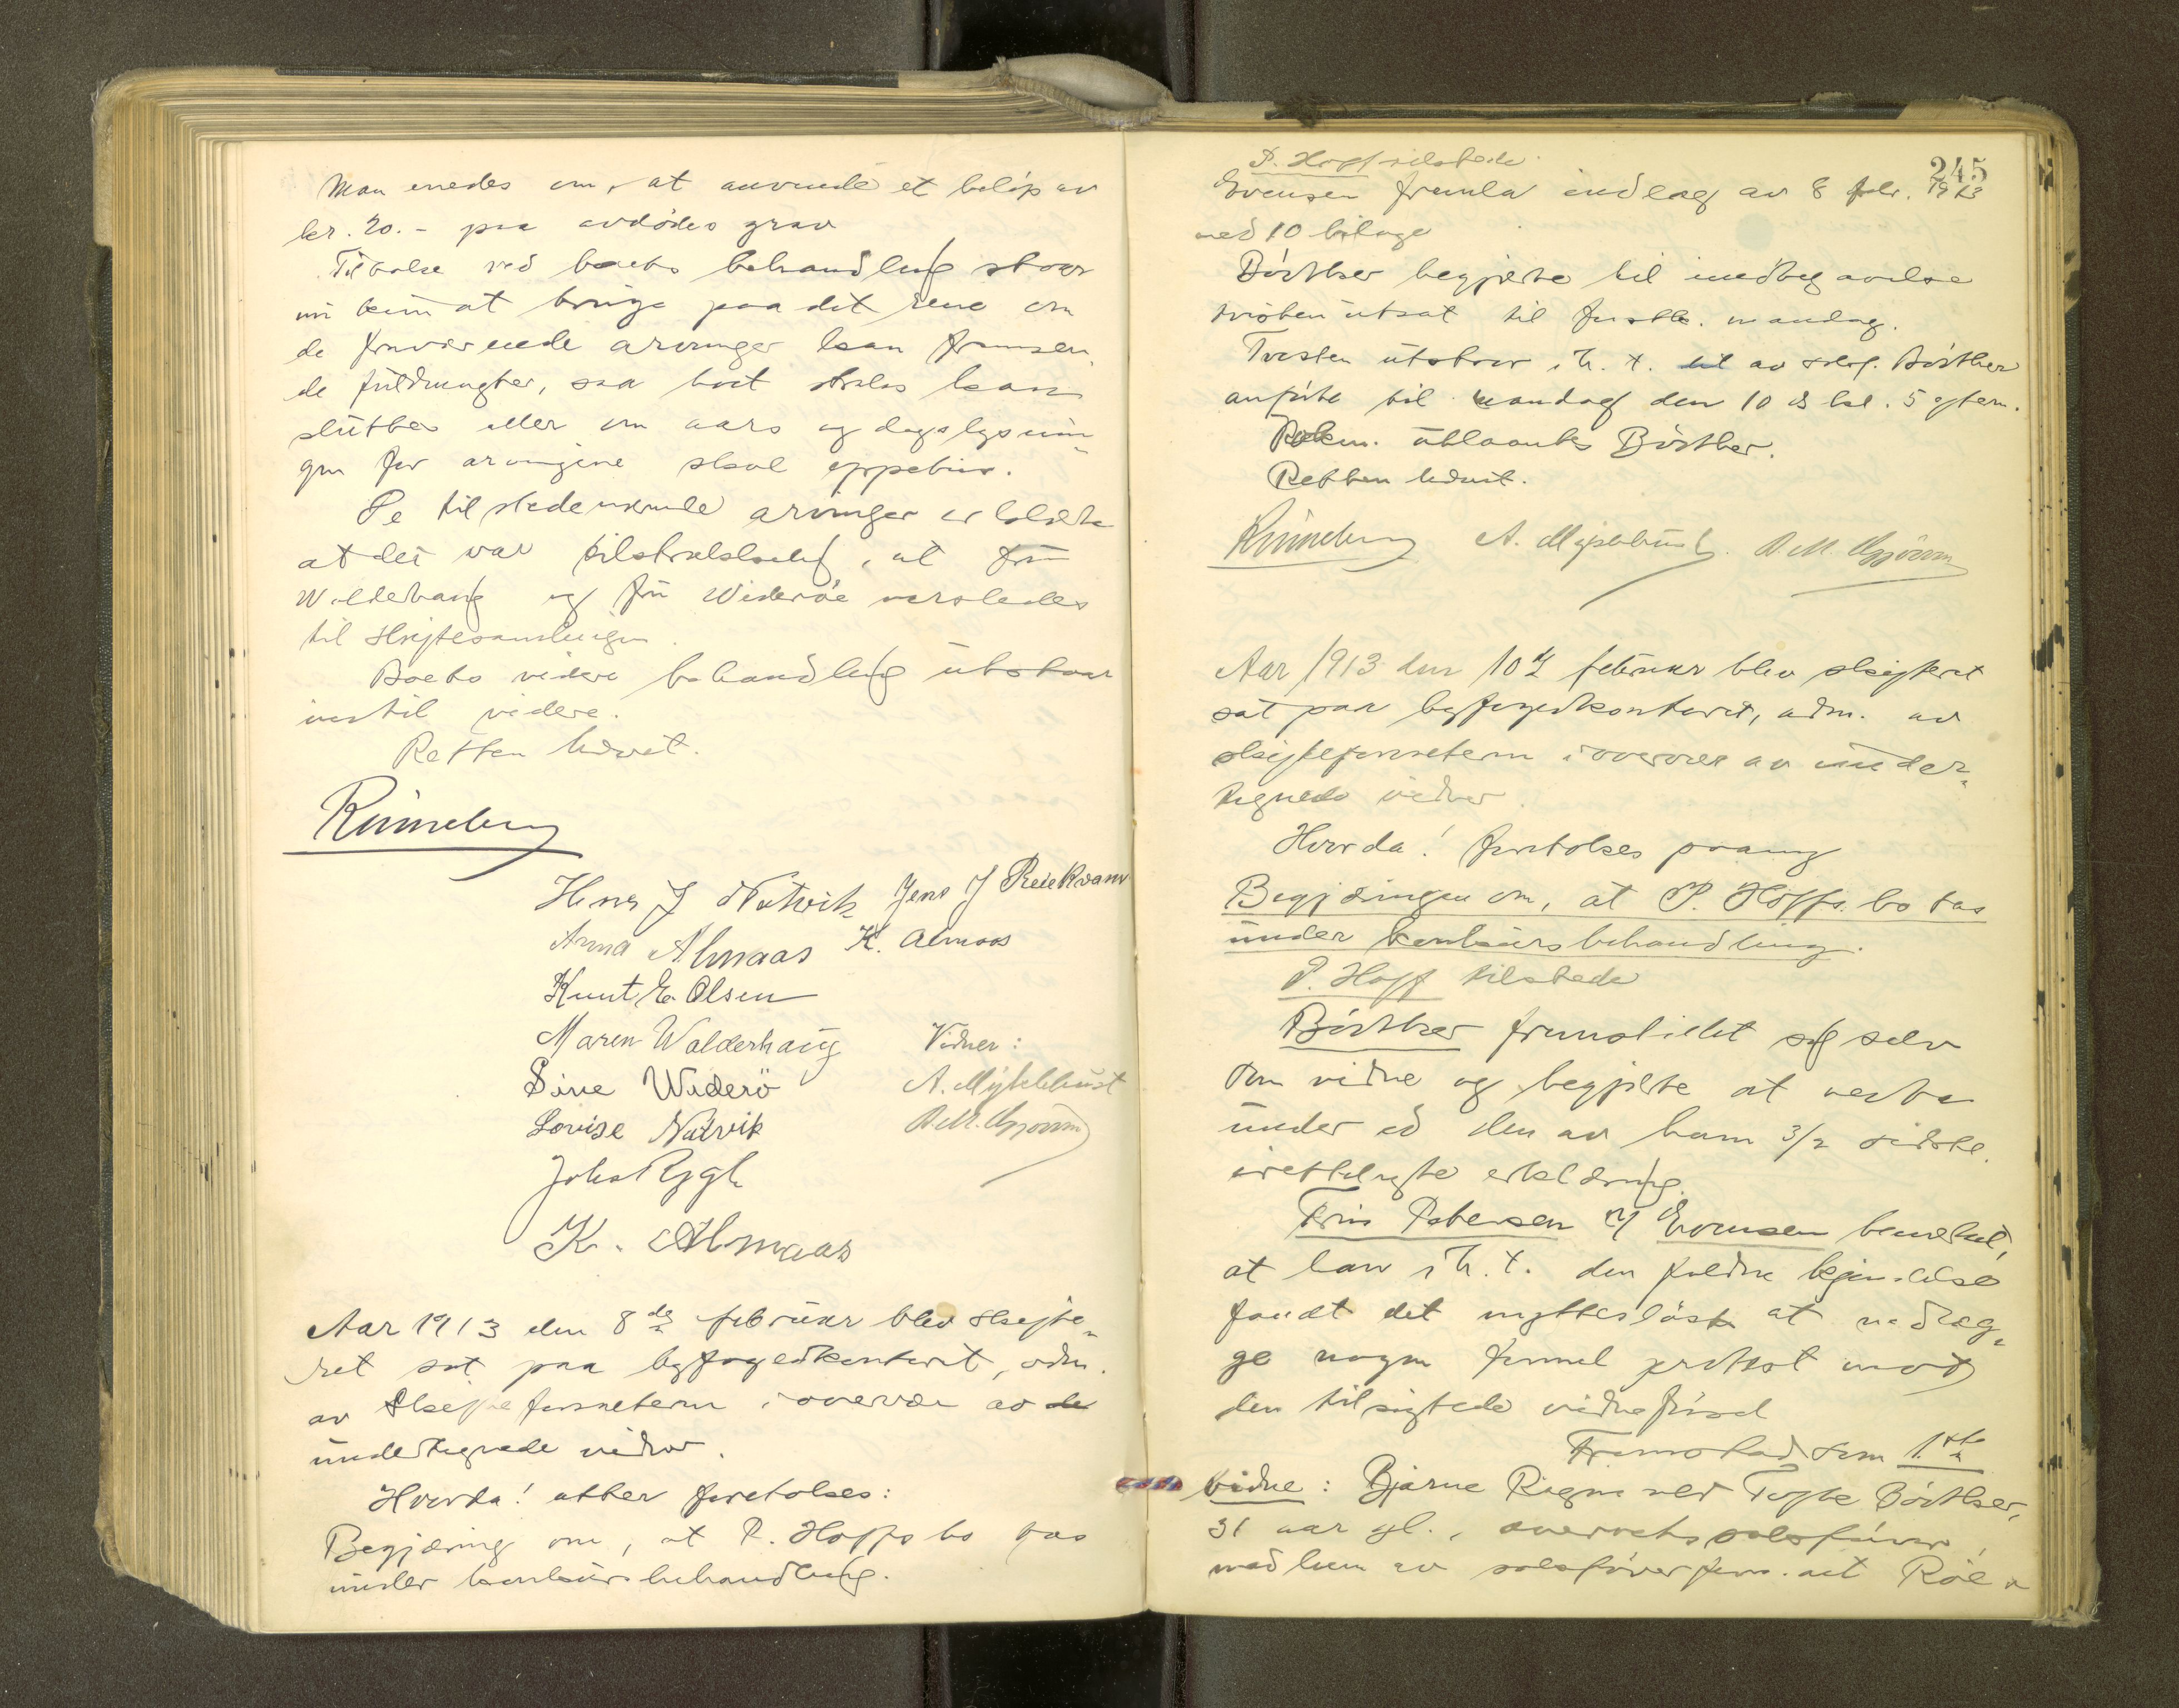 Man enedes om, at anvende et beløp av
kr. 20.- paa avdødes grav
Tilbake ved boets behandling staar
nu kun at bringe paa det rene om
de fraværende arvinger kan fremsen-
de fuldmagter, saa boet straks kan
sluttes eller om aars og dags lysnin-
gen for arvingene skal oppebies.
De tilstedeværende arvinger erklærte
at det var tilstrækkelig, at fru
Walderhaug og fru Widerøe varsledes
til skiftesamlingen.
Boets videre behandling utstaar
indtil videre.
Retten hævet.
Rünneberg
Hans J Natvik Jens J Reiekvam
Anna Almaas K. Almaas
Knut E. Olsen
Maren Walderhaug Vidner:
Sine Widerö A. Myklebust
Lovise Natvik O. M. Uggorm
Johs Rygh
K. Almaas
Aar 1913 den 8de februar blev skifte-
ret sat paa byfogedkontoret, adm.
av skifteforvalteren i overvær av de
undertegnede vidner.
Hvorda! atter foretokes:
Begjæring om, at P. Hoffs bo tas
under konkursbehandling.
245
P. Hoff tilstede.
Evensen fremla indlæg av 8 febr. 1913
med 10 bilage
Börtker begjærte til imøtegaaelse
tvisten utsat til førstk. mandag.
Tvisten utstaar i h. t. til av sakf. Börtker
anførte til mandag den 10 ds kl. 5 eftm.
Dokum. utlaantes Börtker.
Retten hævet.
Rünneberg A. Myklebust. O. M. Uggorm
Aar 1913 den 10de februar blev skifteret
sat paa byfogedkontoret, adm. av
skifteforvalteren i overvær av under-
tegnede vidner.
Hvorda! foretokes paany
Begjæringen om, at P. Hoffs bo tas
under konkursbehandling.
P. Hoff tilstede
Börtker fremstillet sig selv
som vidne og begjærte at vedta
under ed den av ham 3/2 sidstl.
irettelagte erklæring.
Friis Petersen v/ Evensen bemerket,
at han i h. t. den faldne kjendelse
fandt det nytteslöst at nedlæg-
ge nogen formel protest mot
den tilsigtede vidneførsel
Fremstod som 1ste
vidne: Bjarne Tofte Börtker,
31 aar gl., overretssakfører,
medlem av sakførerfirmaet